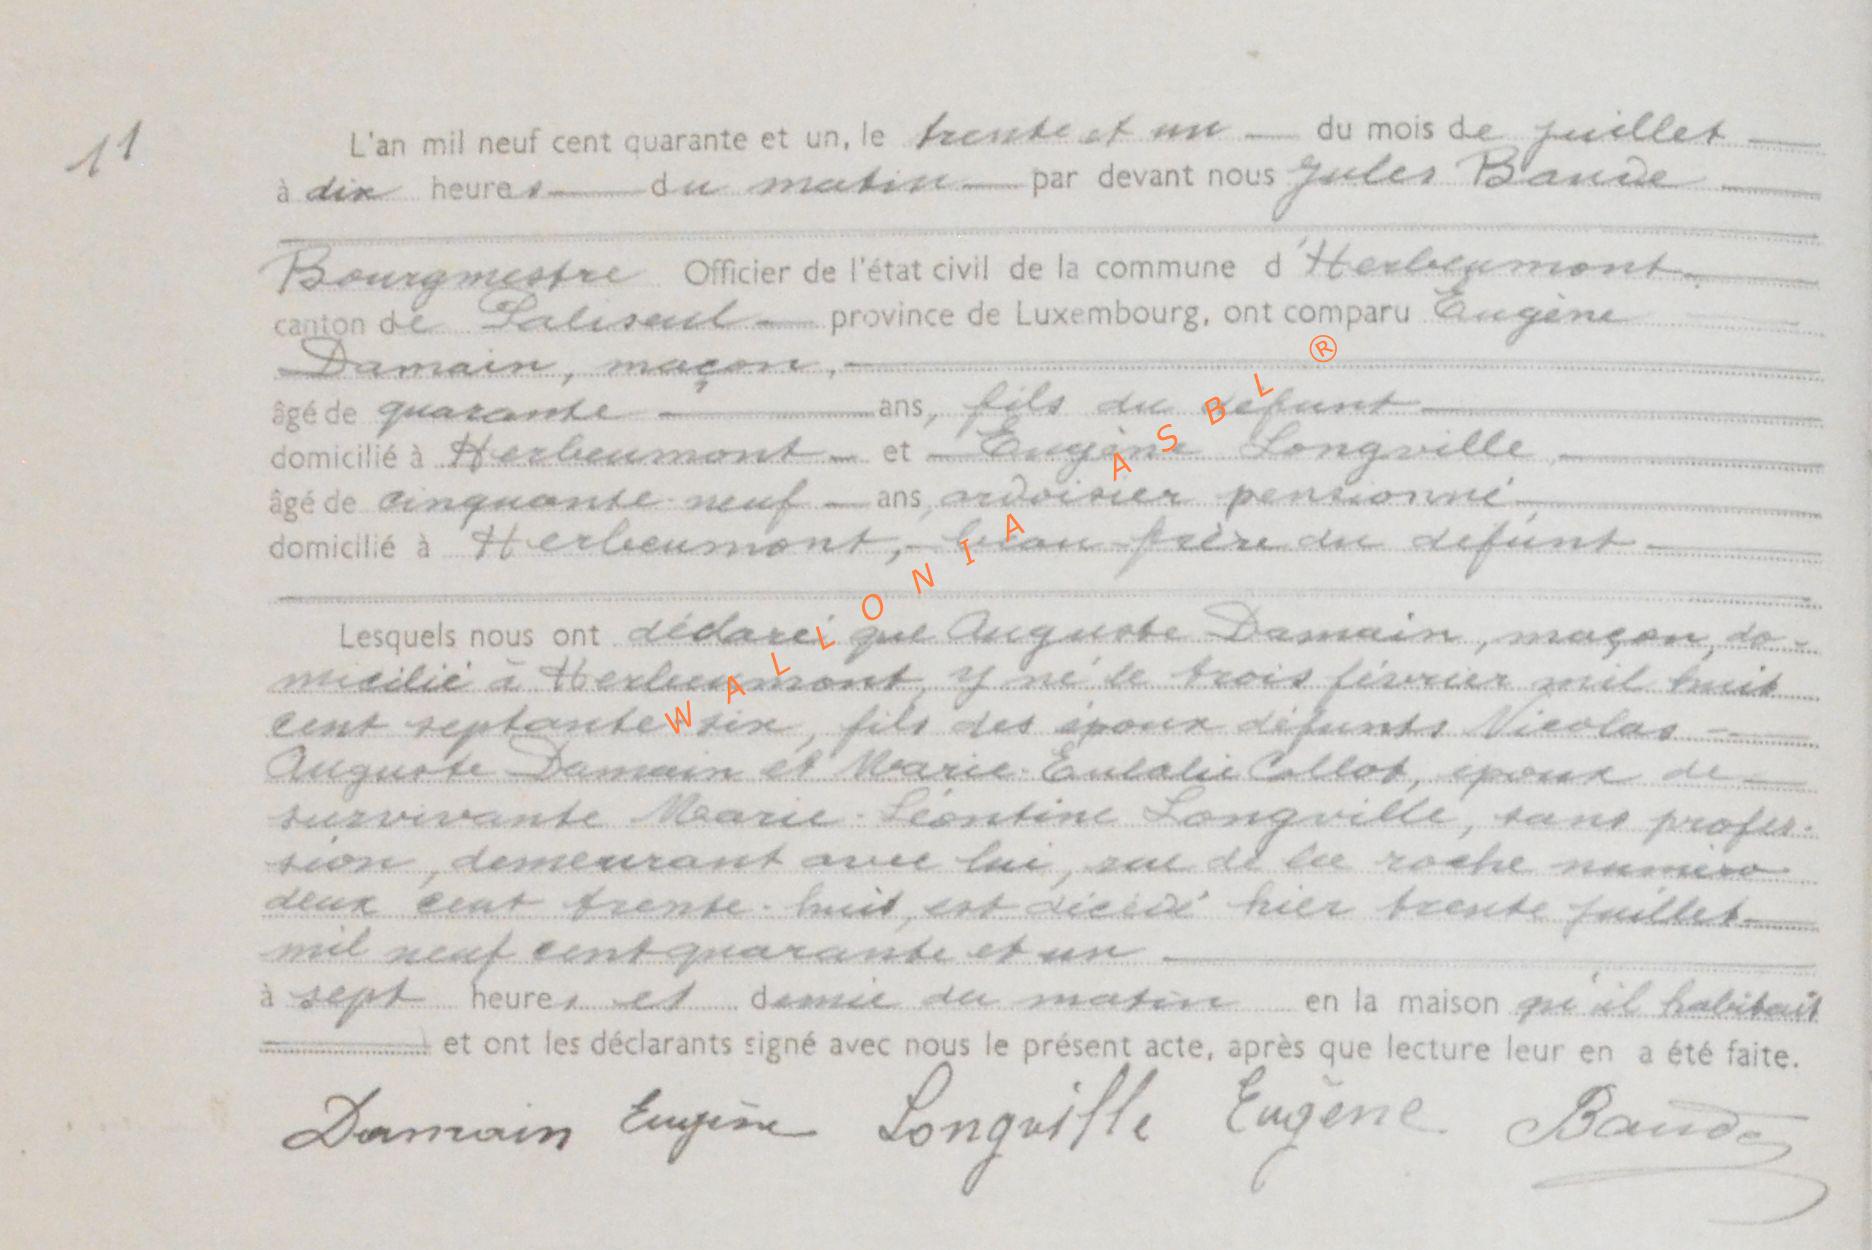 11
L'an mil neuf cent quarante et un, le trente et un du mois de juillet
à dix heures du matin par devant nous Jules Baude
Bourgmestre Officier de l'état civil de la commune d'Herbeumont
canton de Paliseul province de Luxembourg, ont comparu Eugène
Damain, maçon,
âgé de quarante ans, fils du défunt
domicilié à Herbeumont et Eugène Longville,
âgé de cinquante neuf ans, ardoisier pensionné
domicilié à Herbeumont, beau frère du défunt
Lesquels nous ont déclaré que Auguste Damain, maçon, do-
micilié à Herbeumont, y né le trois février mil huit
cent septante-six, fils des époux défunts Nicolas
Auguste Damain et Marie-Eulalie Collot, époux de
survivante Marie-Léontine Longville, sans profes-
sion, demeurant avec lui, rue de la roche numéro
deux cent trente-huit, est décédé hier trente juillet
mil neuf cent quarante et un
à sept heures et demie du matin en la maison qu'il habitait
et ont les déclarants signé avec nous le présent acte, après que lecture leur en a été faite.
Damain Eugène Longville Eugène Baude
WALLONIA ASBL ®